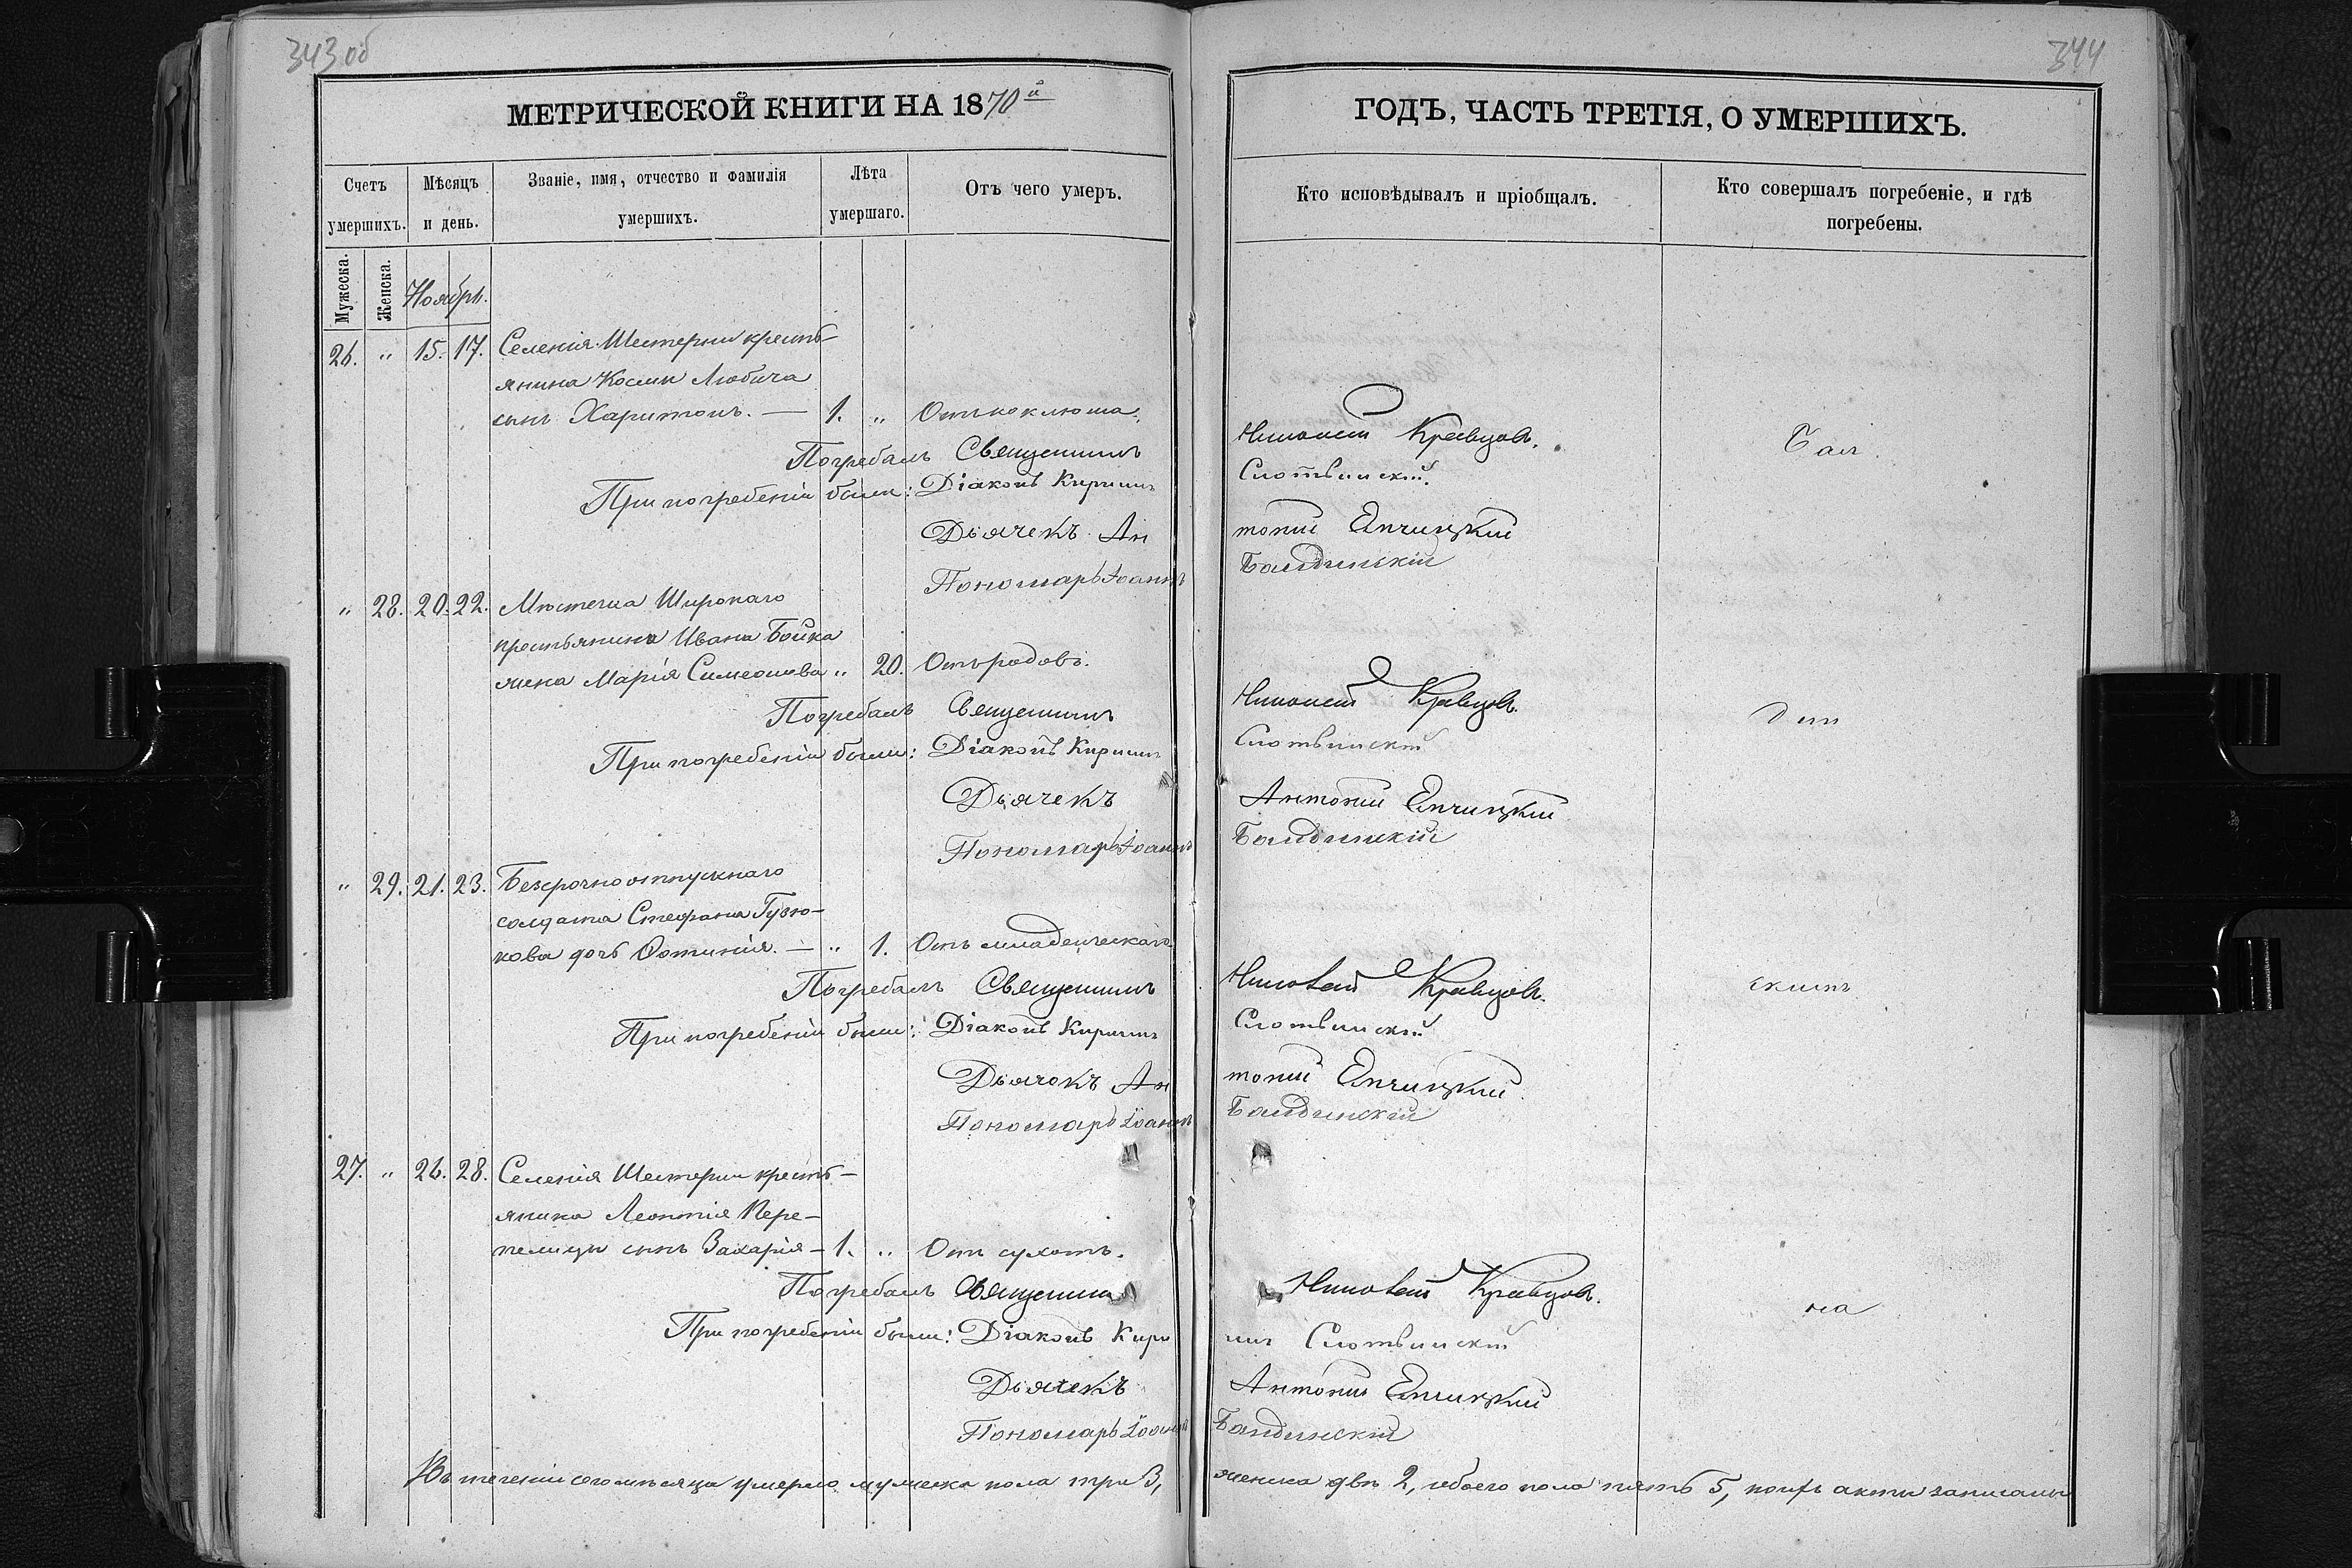 343 об
МЕТРИЧЕСКОЙ КНИГИ НА 1870й
Счетъ умершихъ.
Мѣсяцъ и день.
Званіе, имя, отчество и фамилія умершихъ.
Лѣта умершаго.
Отъ чего умеръ.
Мужеска.
Женска.
Ноябрь.
26. " 15. 17. Селенія Шестерни кресть-
янина Космы Любича
сынъ Харитонъ. — 1. " Отъ коклюша.
Погребалъ Священникъ
При погребеніи были: Діаконъ Кирилъ
Дьячекъ Ан
Пономарь Іоаннъ
" 28. 20. 22. Мѣстечка Широкаго
крестьянина Ивана Бойка
жена Марія Симеонова " 20. Отъ родовъ.
Погребалъ Священникъ
При погребеніи были: Діаконъ Кирилъ
Дьячекъ
Пономарь Іоаннъ
" 29. 21. 23. Безсрочноотпускнаго
солдата Стефана Гузю-
кова дочь Фотинія. — " 1. Отъ младенческаго.
Погребалъ Священникъ
При погребеніи были: Діаконъ Кирилъ
Дьячокъ Ан
Пономарь Іоаннъ
27. " 26. 28. Селенія Шестерни кресть-
янина Леонтія Пере-
пелицы сынъ Захарія — 1. " Отъ сухотъ.
Погребалъ Священник
При погребеніи были: Діаконъ Кири
Дьячекъ
Пономарь Іоаннъ
Въ теченіи сего мѣсяца умерло мужеска пола три 3,
344
ГОДЪ, ЧАСТЬ ТРЕТІЯ, О УМЕРШИХЪ.
Кто исповѣдывалъ и пріобщалъ.
Кто совершалъ погребеніе, и гдѣ погребены.
Николай Кравцовъ.
Слотвинскій.
тоній Епчицкій
Балдинскій
Николай Кравцовъ.
Слотвинскій
Антоній Епчицкій
Балдинскій
Николай Кравцовъ.
Слотвинскій
тоній Епчицкій
Балдинскій
Николай Кравцовъ.
лъ Слотвинскій
Антоній Епчицкій
Балдинскій
на
женска двѣ 2, обоего пола пять 5, коихъ акты записаны